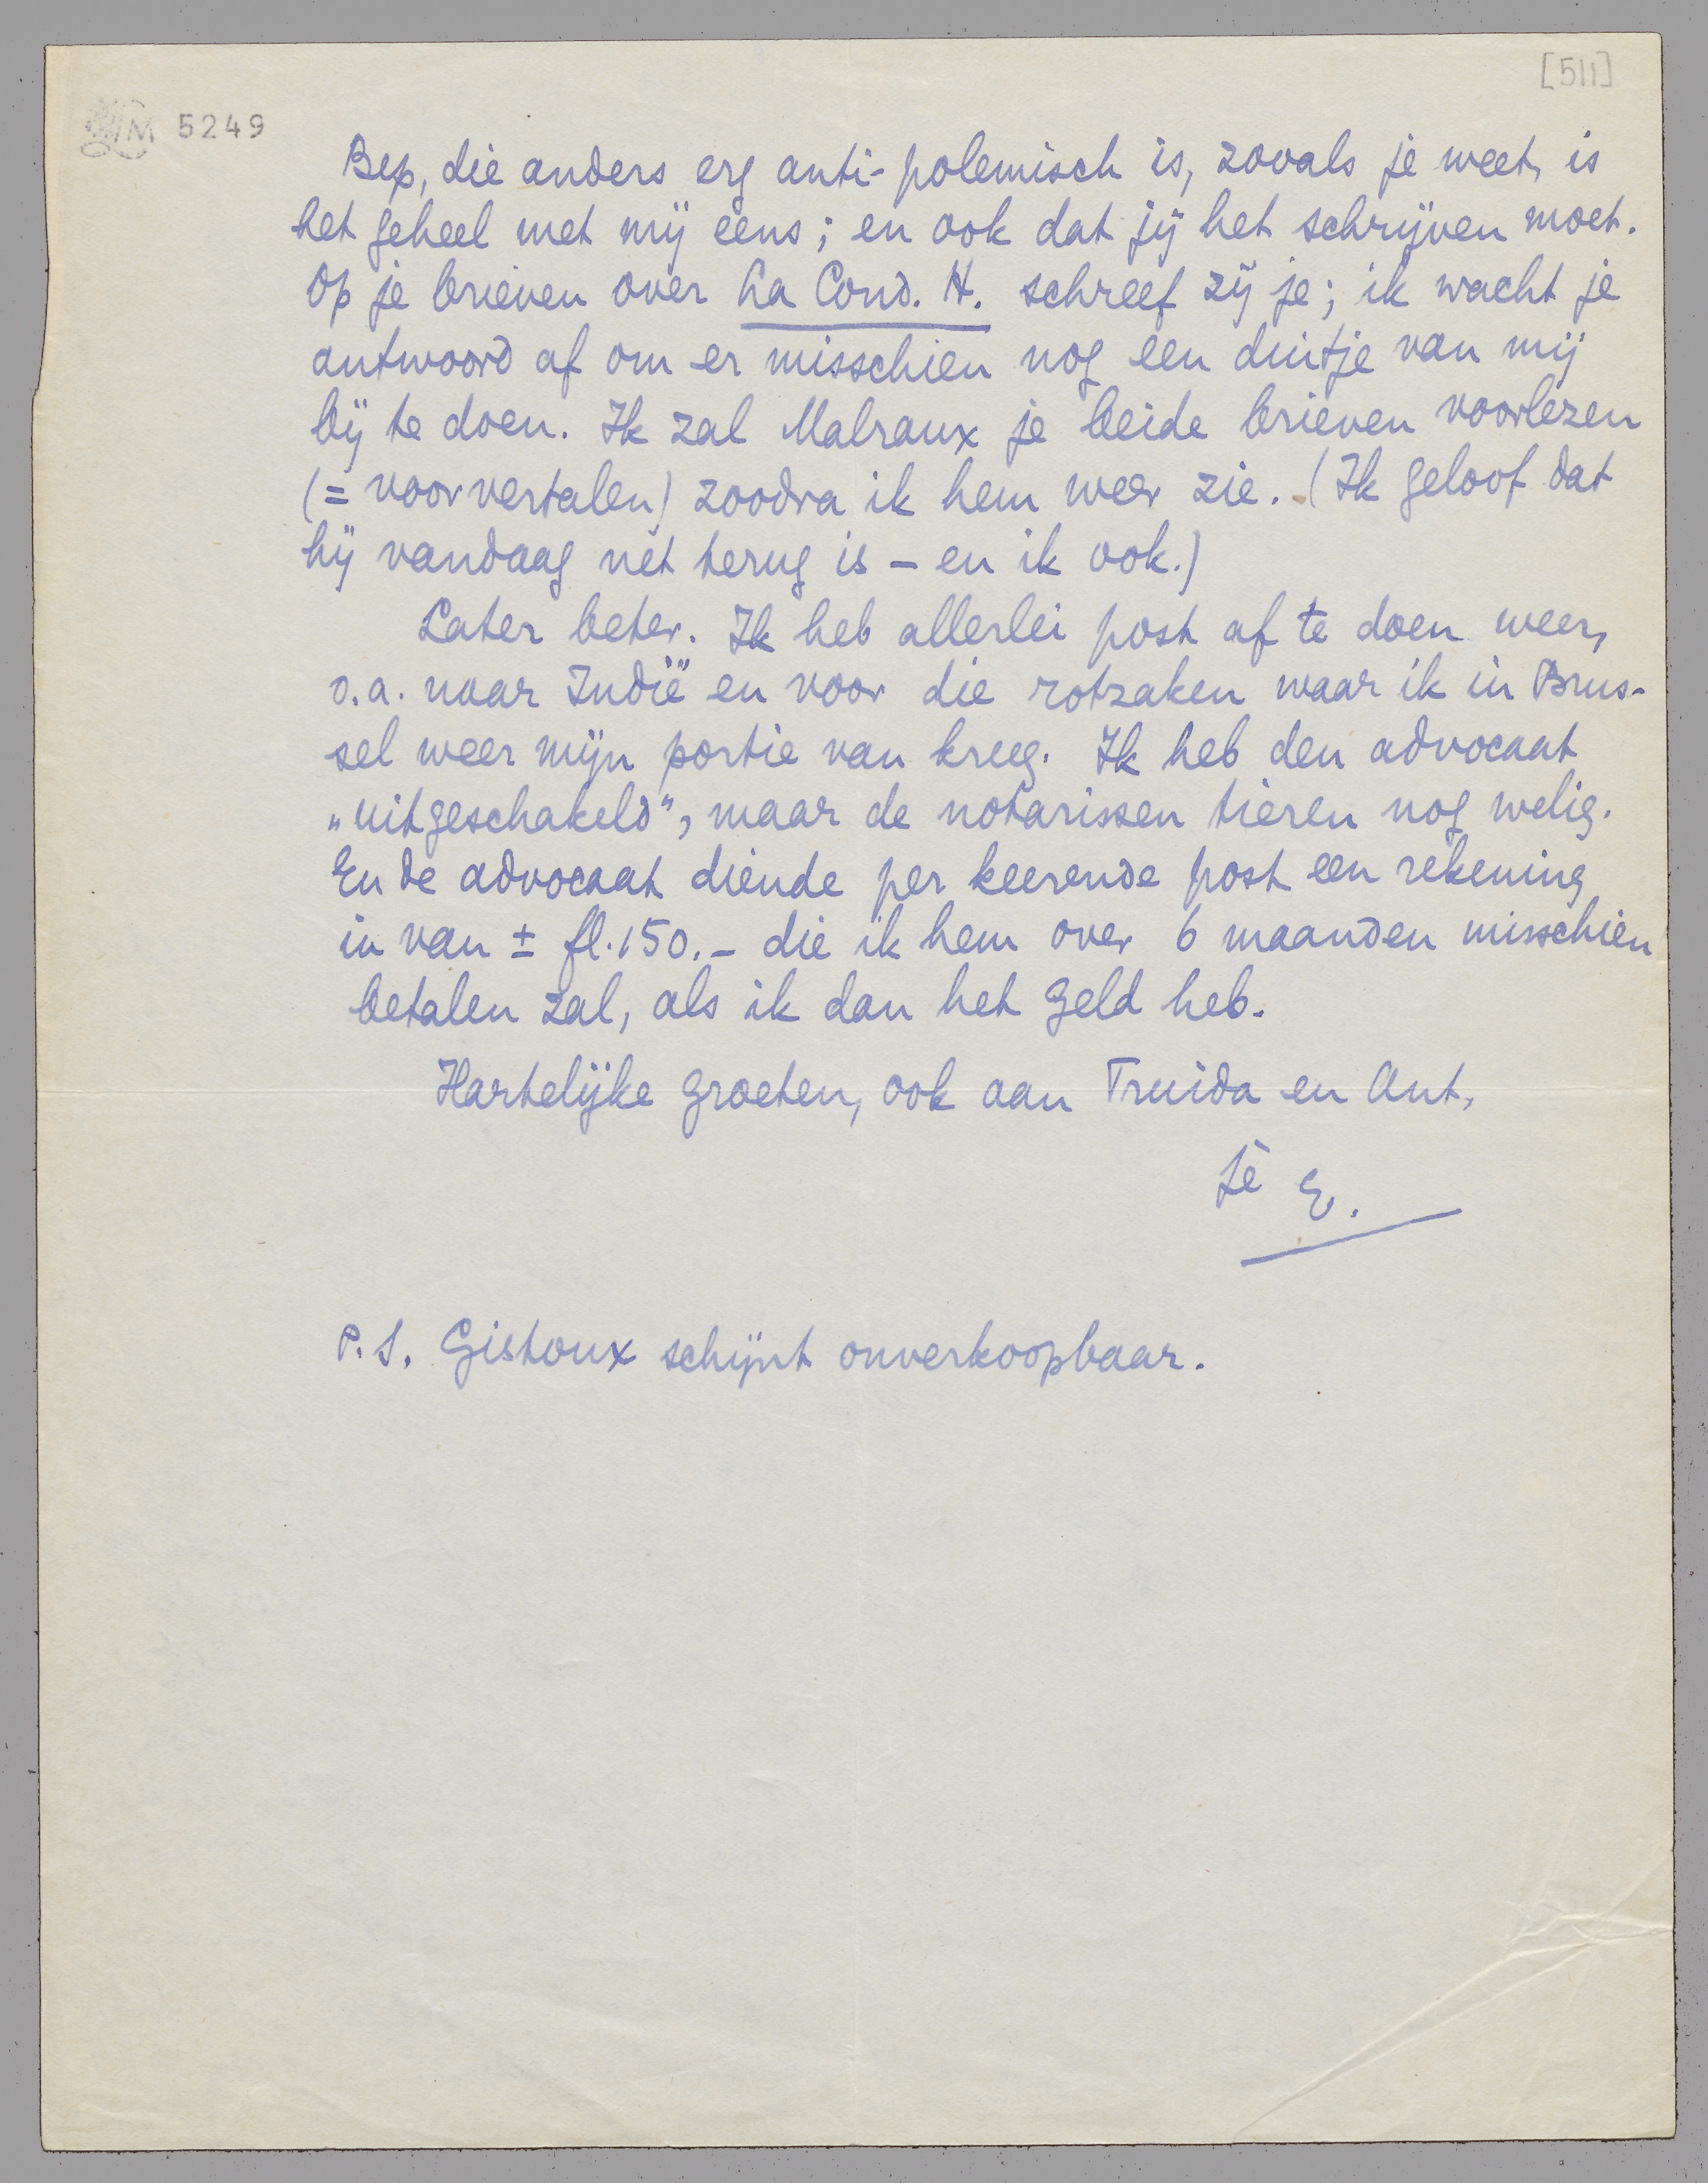 [511]
5249
Bep, die anders erg anti-polemisch is, zooals je weet, is
het geheel met mij eens; en ook dat jij het schrijven moet.
Op je brieven over La Cond. H. schreef zij je; ik wacht je
antwoord af om er misschien nog een duitje van mij
bij te doen. Ik zal Malraux je beide brieven voorlezen
(= voorvertalen) zoodra ik hem weer zie. (Ik geloof dat
hij vandaag nèt terug is – en ik ook.)
Later beter. Ik heb allerlei post af te doen weer,
o.a. naar Indië en voor die rotzaken waar ik in Brus-
sel weer mijn portie van kreeg. Ik heb den advocaat
„uitgeschakeld”, maar de notarissen tieren nog welig.
En de advocaat diende per keerende post een rekening
in van ± fl. 150.– die ik hem over 6 maanden misschien
betalen zal, als ik dan het geld heb.
Hartelijke groeten, ook aan Truida en Ant,
je E.
P.S. Gistoux schijnt onverkoopbaar.